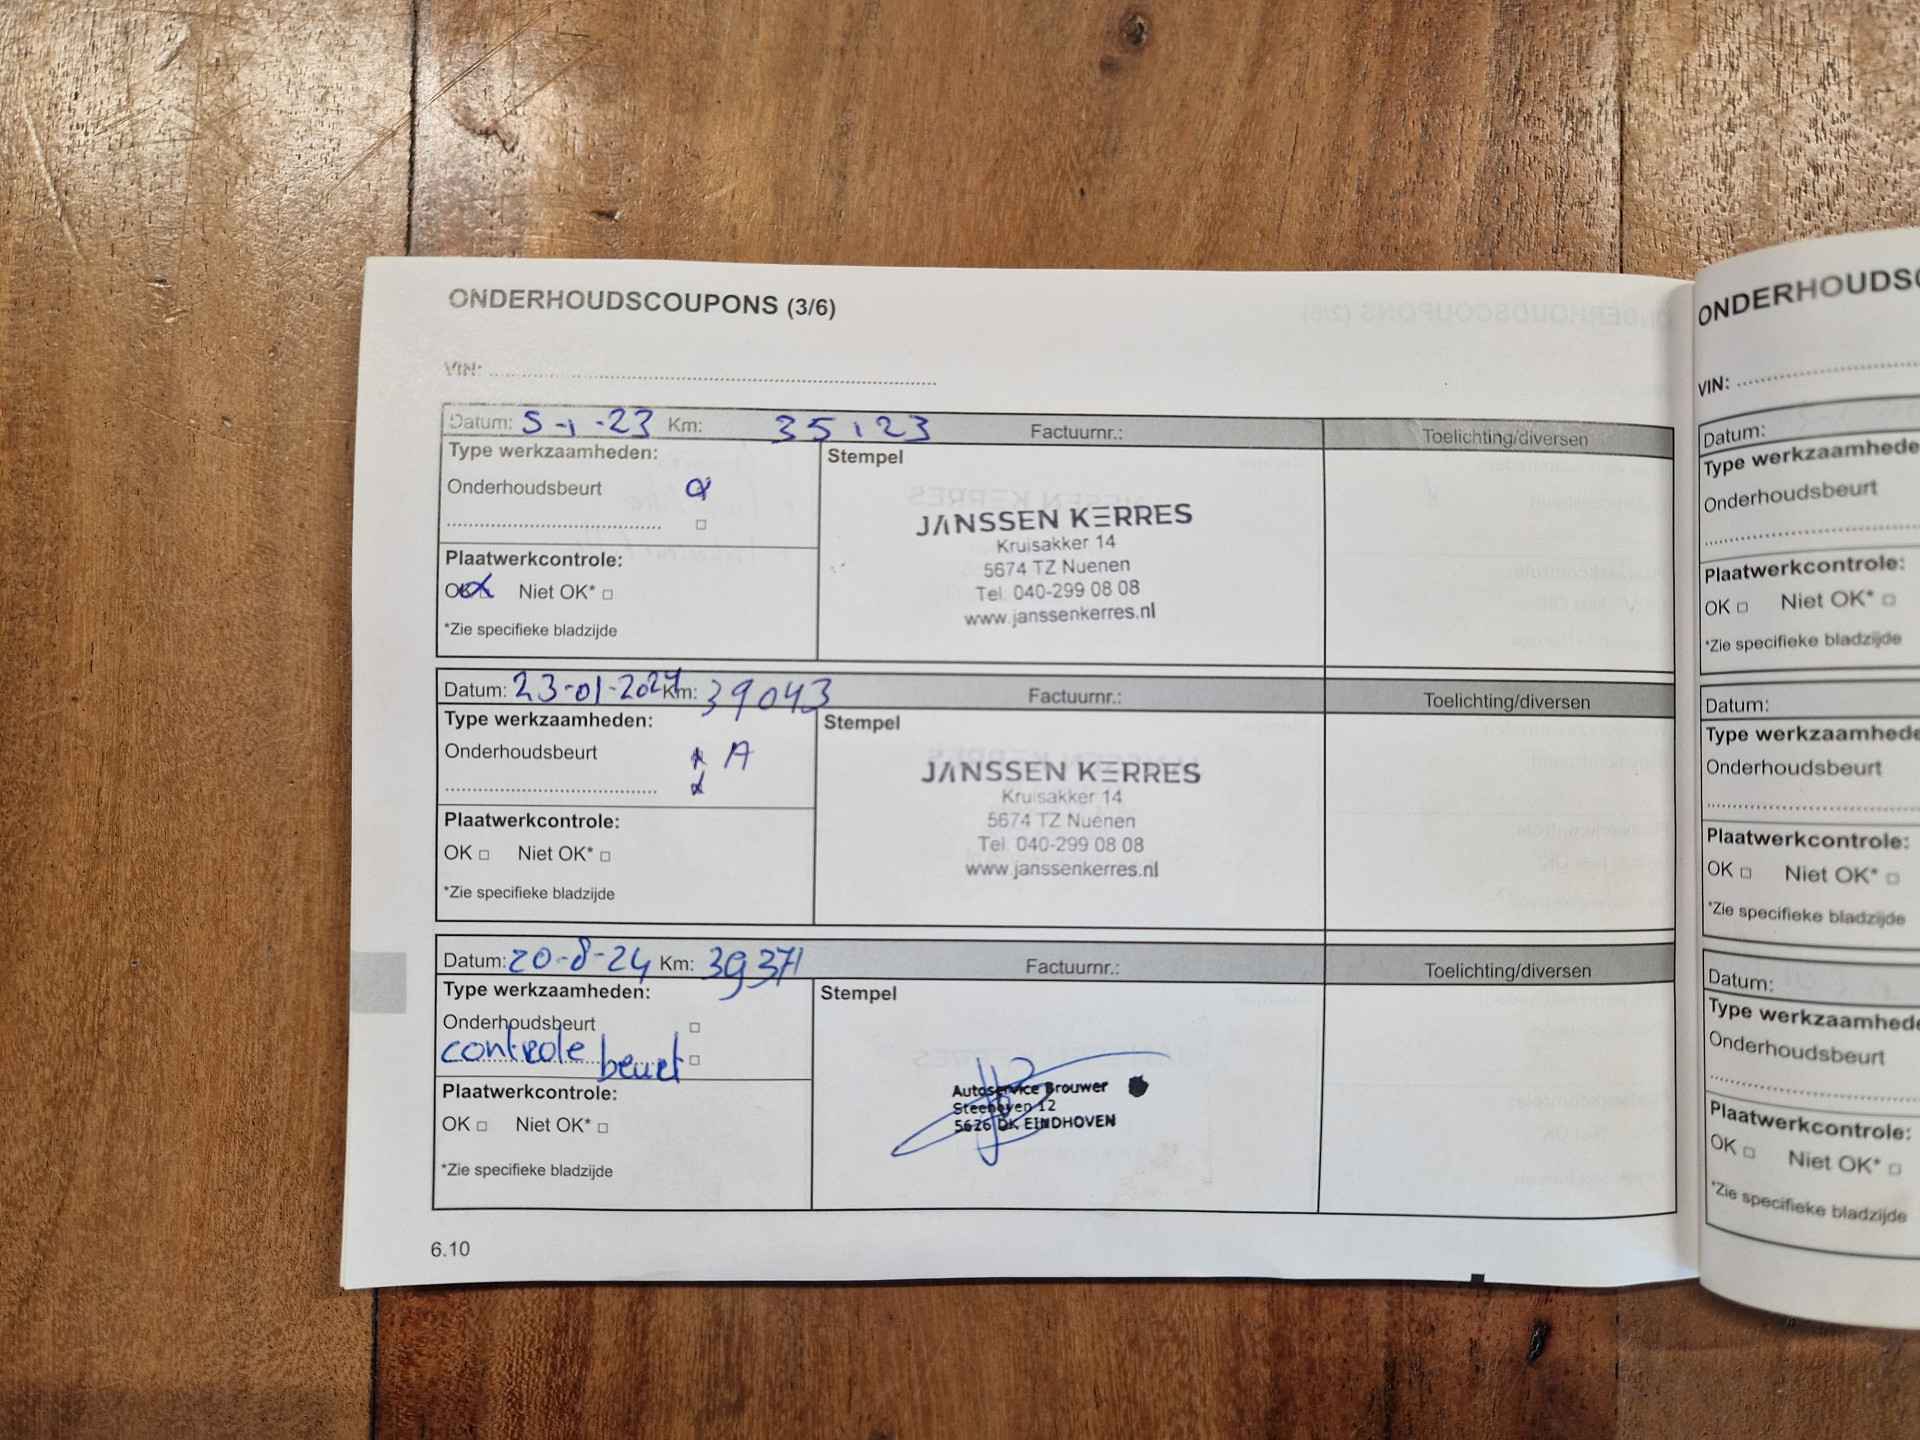 ONDERHOUDSCOUPONS (3/6)
VIN:
Datum: 5-1-23 Km: 35123 Factuurnr.: Toelichting/diversen
Type werkzaamheden:
Stempel
Onderhoudsbeurt
JANSSEN KERRES
Kruisakker 14
5674 TZ Nuenen
Tel. 040-299 08 08
www.janssenkerres.nl
Plaatwerkcontrole:
OK Niet OK*
*Zie specifieke bladzijde
Datum: 23-01-2024 Km: 39043 Factuurnr.: Toelichting/diversen
Type werkzaamheden:
Stempel
Onderhoudsbeurt A
JANSSEN KERRES
Kruisakker 14
5674 TZ Nuenen
Tel. 040-299 08 08
www.janssenkerres.nl
Plaatwerkcontrole:
OK Niet OK*
*Zie specifieke bladzijde
Datum: 20-8-24 Km: 39371 Factuurnr.: Toelichting/diversen
Type werkzaamheden:
Stempel
Onderhoudsbeurt
controle beurt
Autoservice Brouwer
Steenoven 12
5626 DK EINDHOVEN
Plaatwerkcontrole:
OK Niet OK*
*Zie specifieke bladzijde
6.10
ONDERHOUDSC
VIN:
Datum:
Type werkzaamhede
Onderhoudsbeurt
Plaatwerkcontrole:
OK Niet OK*
*Zie specifieke bladzijde
Datum:
Type werkzaamhede
Onderhoudsbeurt
Plaatwerkcontrole:
OK Niet OK*
*Zie specifieke bladzijde
Datum:
Type werkzaamhede
Onderhoudsbeurt
Plaatwerkcontrole:
OK Niet OK*
*Zie specifieke bladzijde